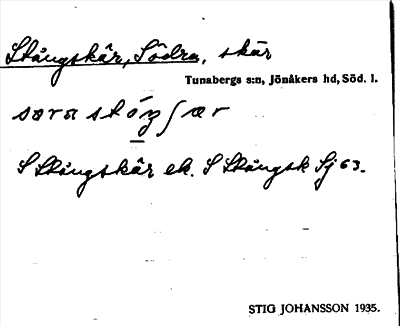 Stångskär, Södra, skär
Tunabergs s:n, Jönåkers hd, Söd. l.
S Stångskär ek. S Stångsk Sj 63.
STIG JOHANSSON 1935.